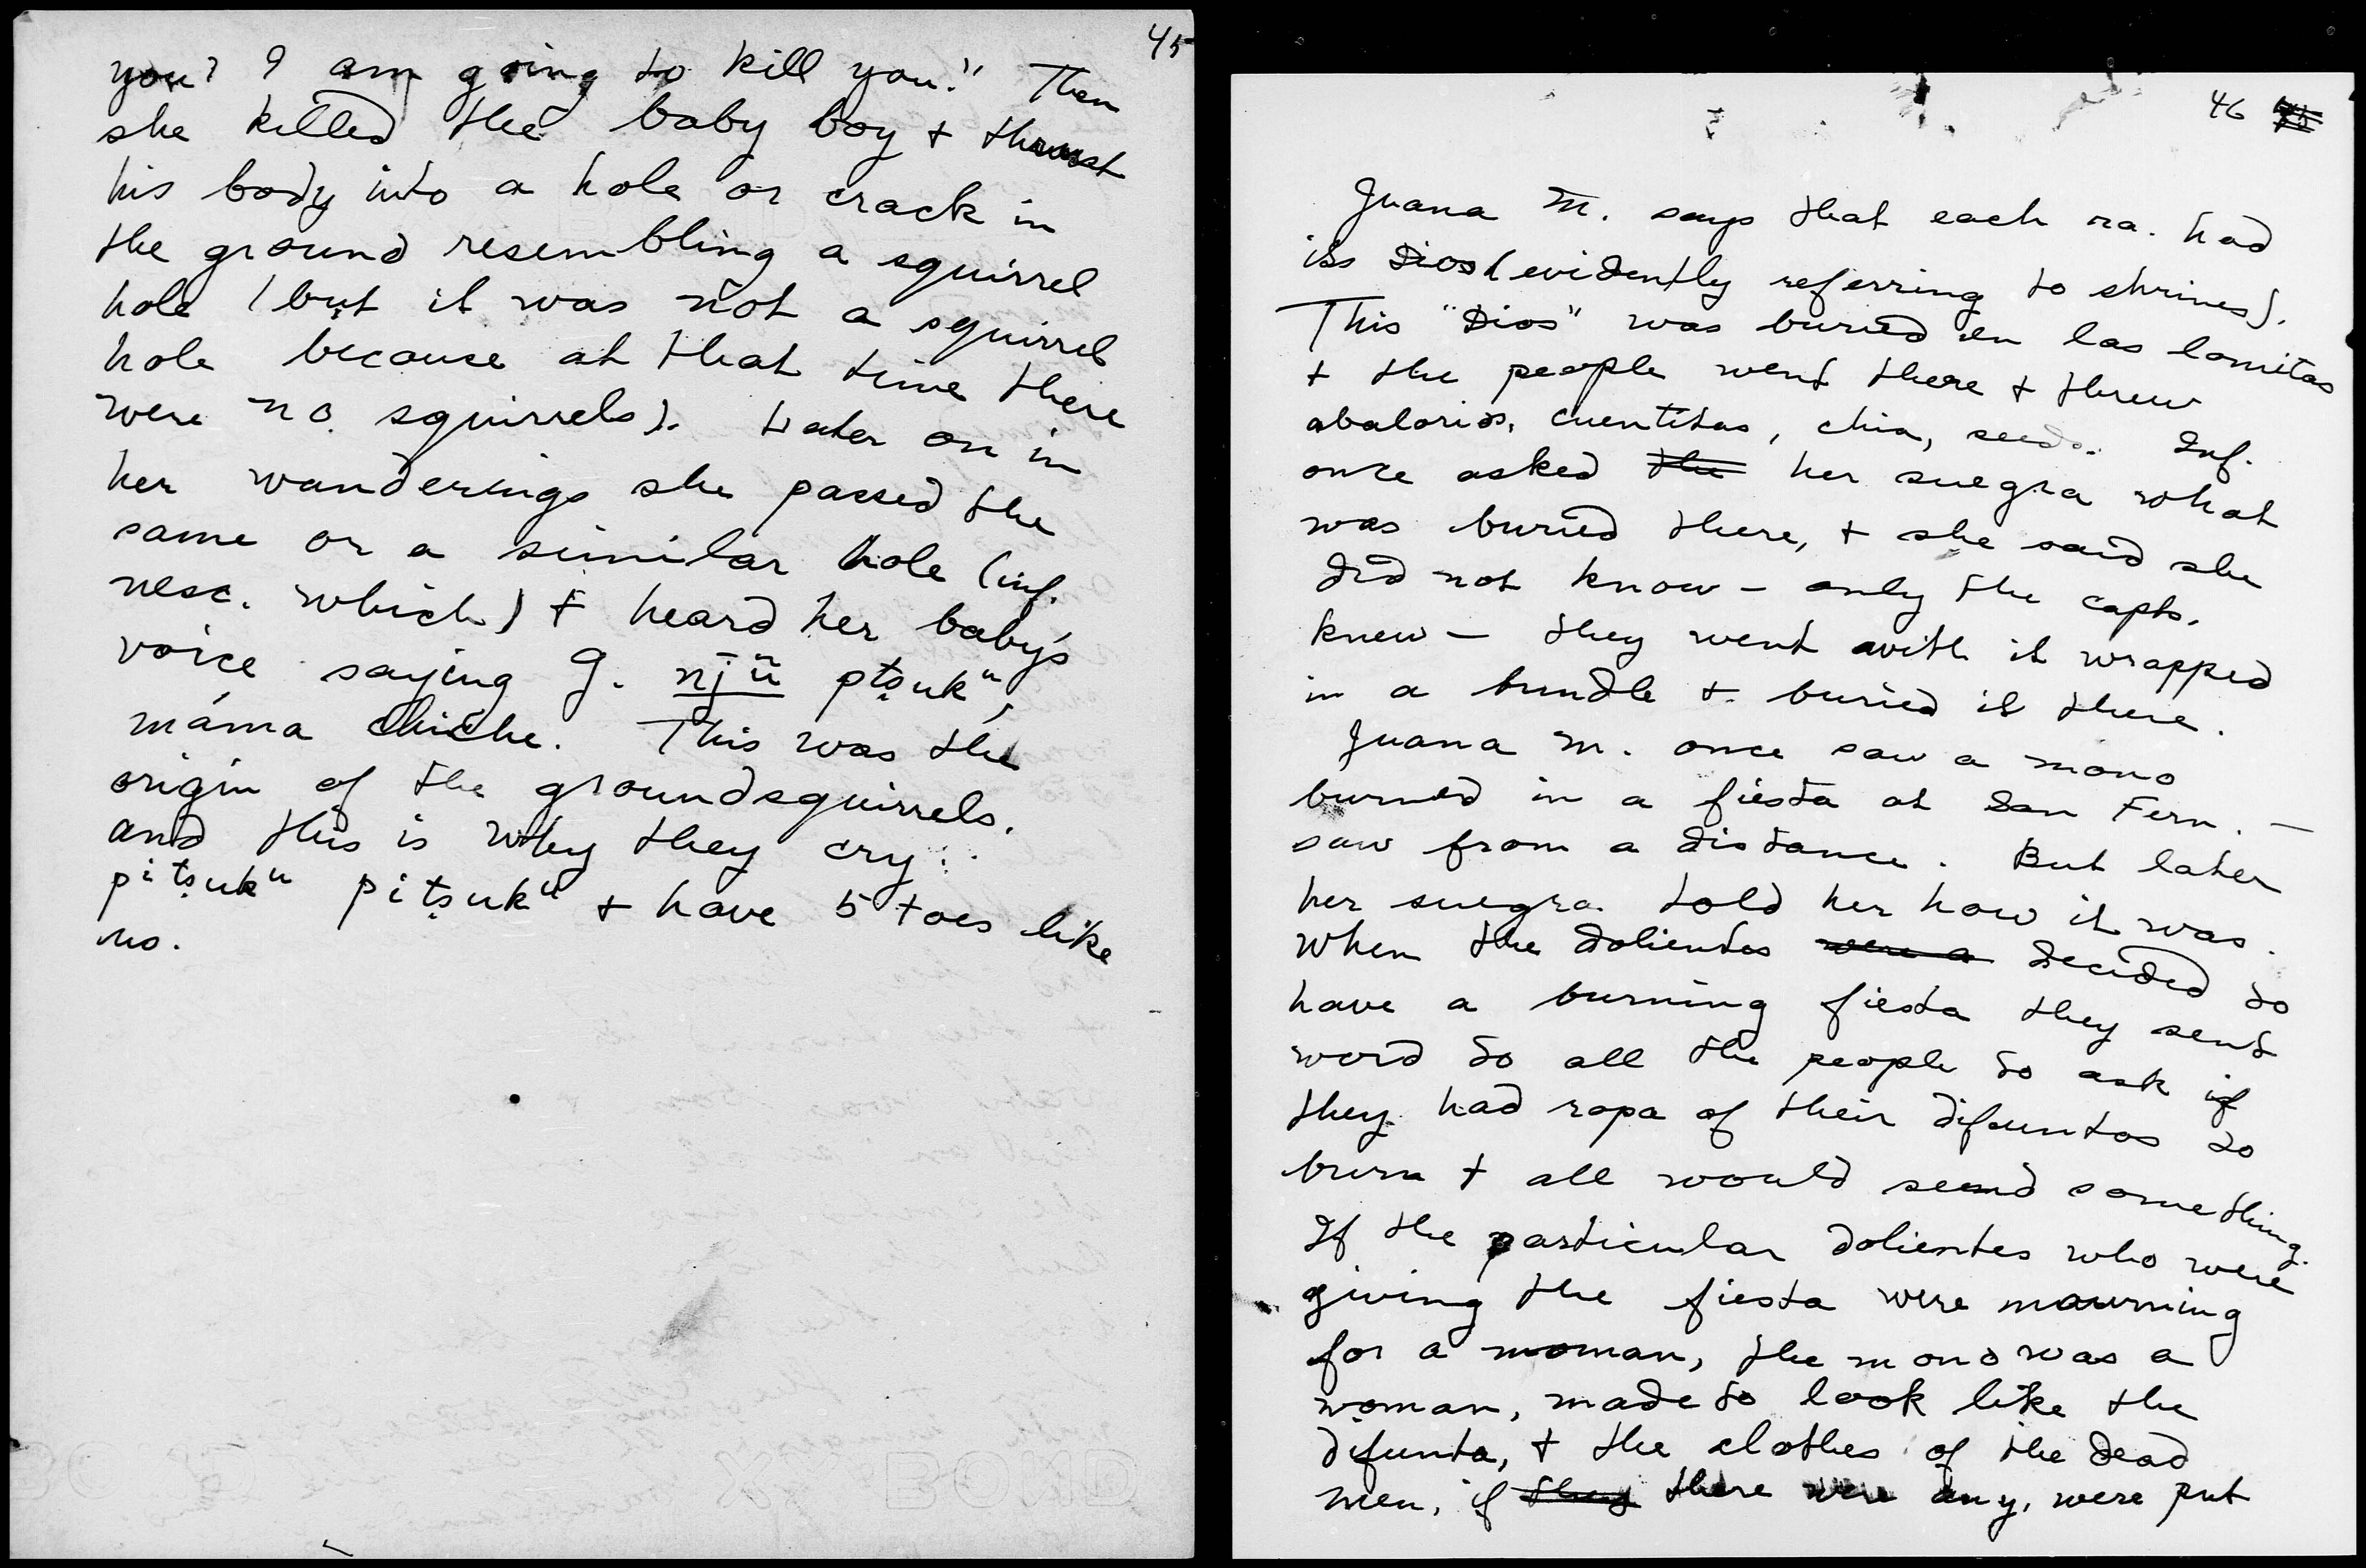 45
you? I am going to kill you." Then
she killed the baby boy + thrust
his body into a hole or crack in
the ground resembling a squirrel
hole (but it was not a squirrel
hole because at that time there
were no squirrels). Later on in
her wanderings she passed the
same or a similar hole (inf.
nesc. which) + heard her baby's
voice saying J. pịtsukᵘ,
máma chiche. This was the
origin of the groundsquirrels.
and this is why they cry:
pịtsukᵘ pịtsukᵘ + have 5 toes like
us.
46
Juana M. says that each ra. had
its Dios (evidently referring to shrines).
This "Dios" was buried en las lomitas
+ the people went there + threw
abalorios, cuentitas, chia, seeds. Inf.
once asked the her suegra what
was buried there, + she said she
did not know – only the capts.
knew – they went with it wrapped
in a bundle + buried it there.
Juana M. once saw a mono
burned in a fiesta at San Fern. –
saw from a distance. But later
her suegra told her how it was.
When the dolientes were a decided to
have a burning fiesta they sent
word to all the people to ask if
they had ropa of their difuntos to
burn + all would send something.
If the particular dolientes who were
giving the fiesta were mourning
for a woman, the mono was a
woman, made to look like the
difunta, + the clothes of the dead
men, if they there were any, were put
BOND